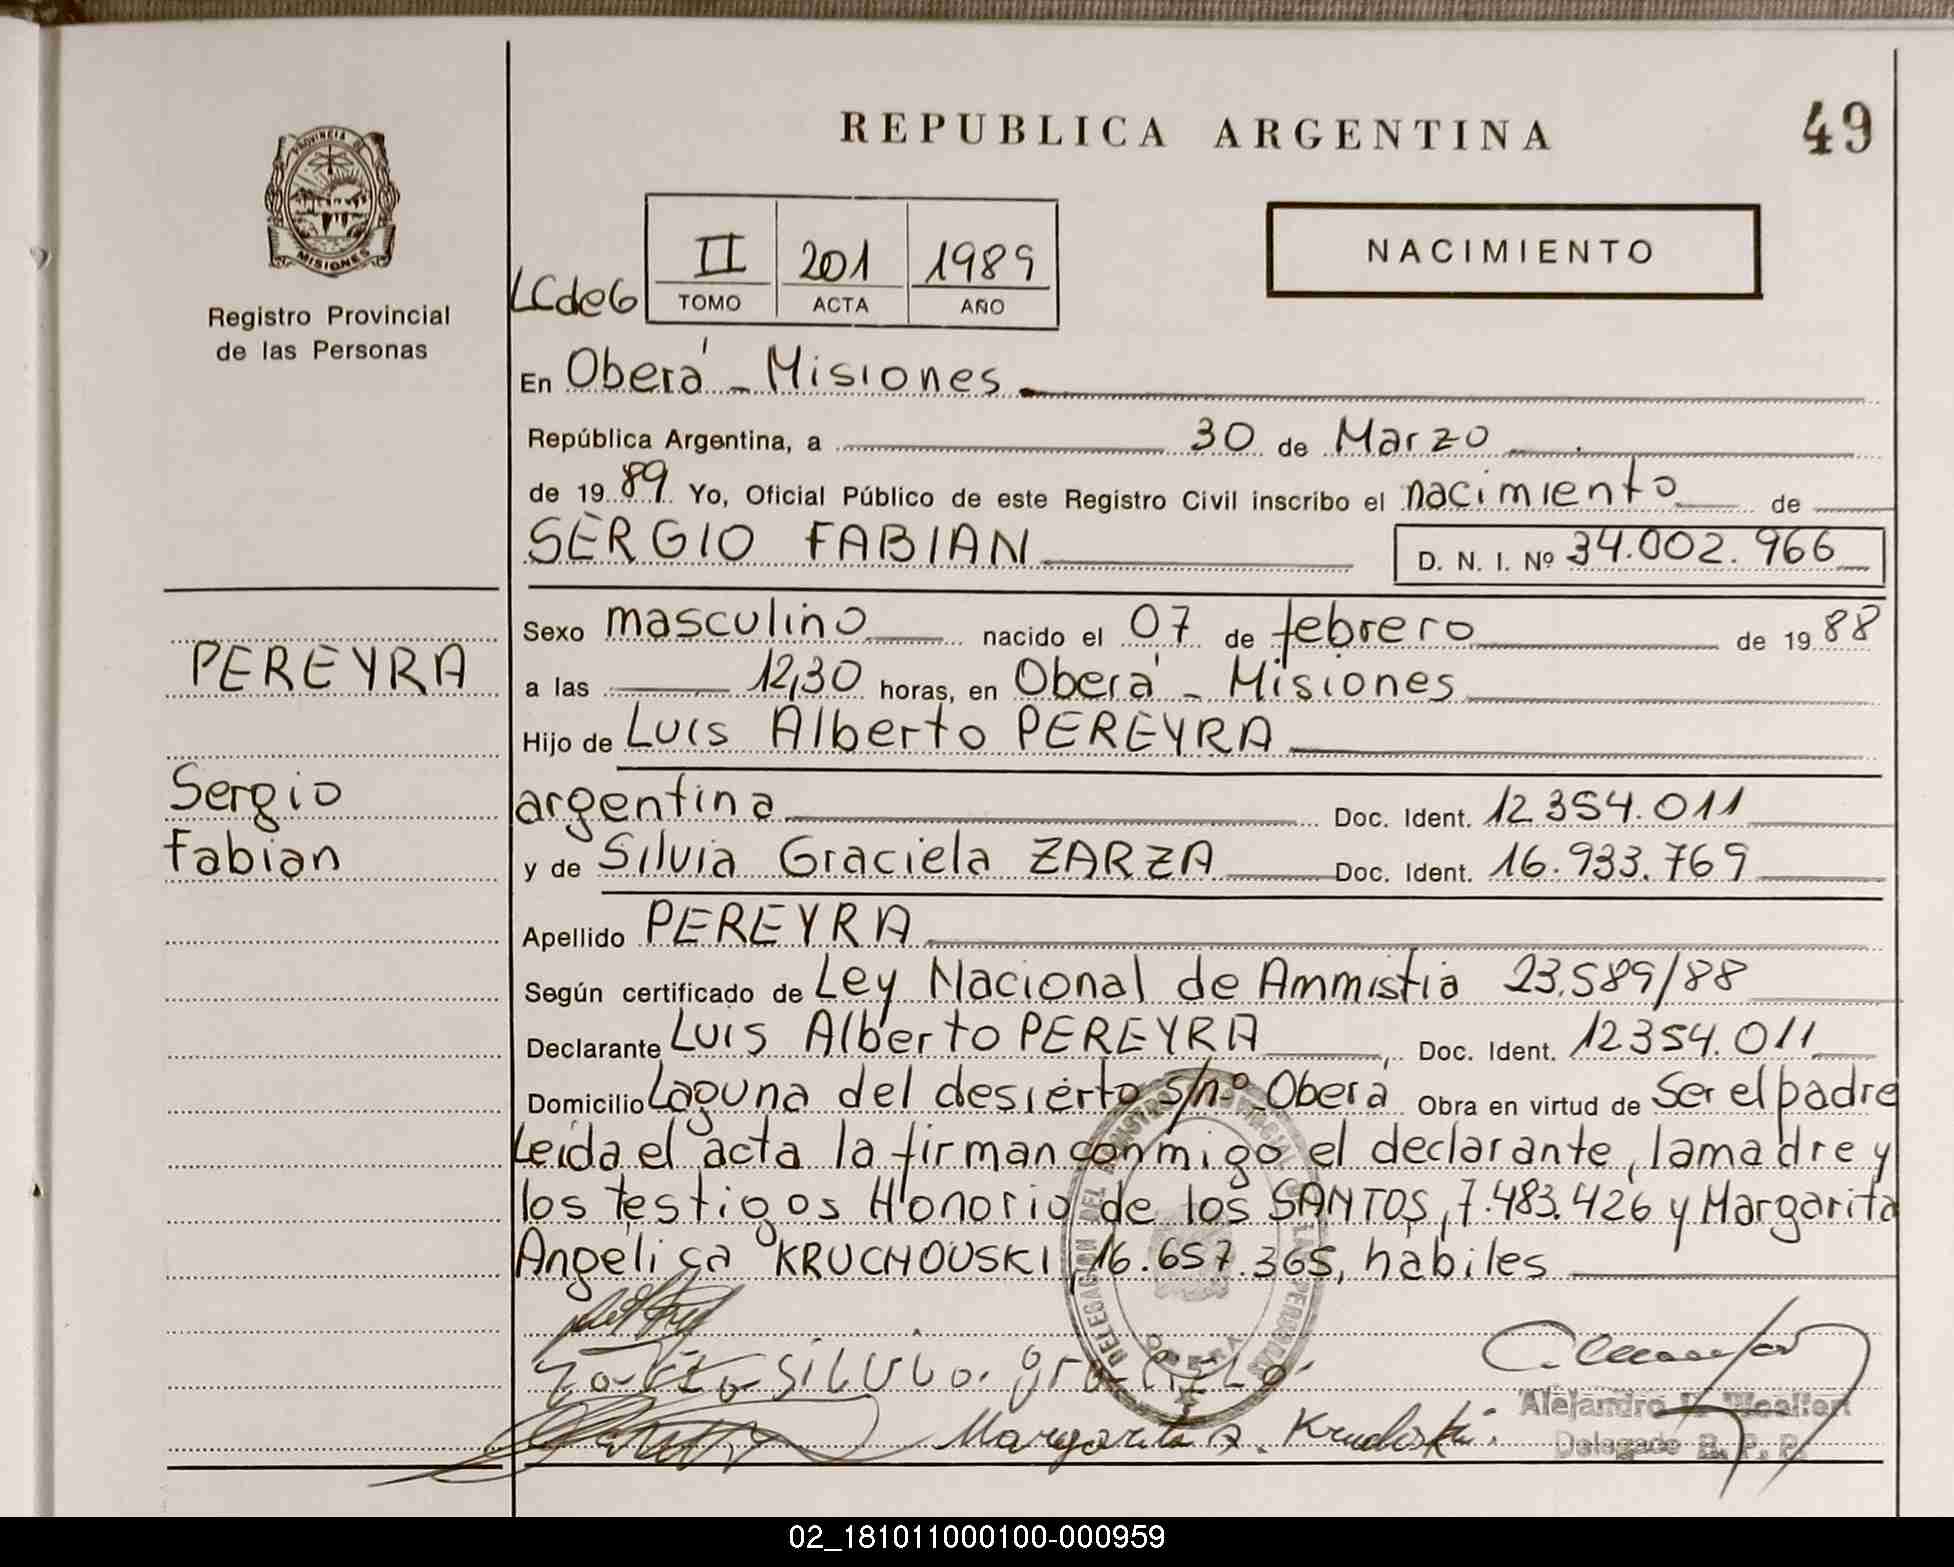 REPUBLICA ARGENTINA
49
PROVINCIA D
MISIONES
Registro Provincial
de las Personas
LCde6
II 201 1989
TOMO ACTA AÑO
NACIMIENTO
En Oberá - Misiones
República Argentina, a 30 de Marzo
de 19 89 Yo, Oficial Público de este Registro Civil inscribo el nacimiento de
SERGIO FABIAN D. N. I. Nº 34.002.966
Sexo masculino nacido el 07 de febrero de 19 88
PEREYRA
a las 12,30 horas, en Oberá - Misiones
Hijo de Luis Alberto PEREYRA
Sergio
Fabian
argentina Doc. Ident. 12354.011
y de Silvia Graciela ZARZA Doc. Ident. 16.933.769
Apellido PEREYRA
Según certificado de Ley Nacional de Ammistia 23.589/88
Declarante Luis Alberto PEREYRA, Doc. Ident. 12354.011
Domicilio Laguna del desierto s/nº Oberá Obra en virtud de Ser el padre
Leída el acta la firman conmigo el declarante, la madre y
los testigos Honorio de los SANTOS, 7.483.426 y Margarita
Angélica KRUCHOUSKI, 16.657.365, hábiles
DELEGACION DEL REGISTRO PROVINCIAL DE LAS PERSONAS
OBERA
Zarza Silvia. graciela.
Margarita A. Kruchoski.
Alejandro
Delegado R. P. P.
02_181011000100-000959